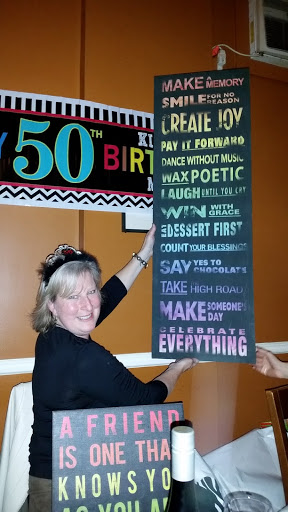 Y 50TH BIRT
KI
MAKE A MEMORY
SMILE FOR NO REASON
CREATE JOY
PAY IT FORWARD
DANCE WITHOUT MUSIC
WAX POETIC
LAUGH UNTIL YOU CRY
WIN WITH GRACE
EAT DESSERT FIRST
COUNT YOUR BLESSINGS
SAY YES TO CHOCOLATE
TAKE THE HIGH ROAD
MAKE SOMEONE'S DAY
CELEBRATE
EVERYTHING
A FRIEND
IS ONE THA
KNOWS YO
AS YOU A